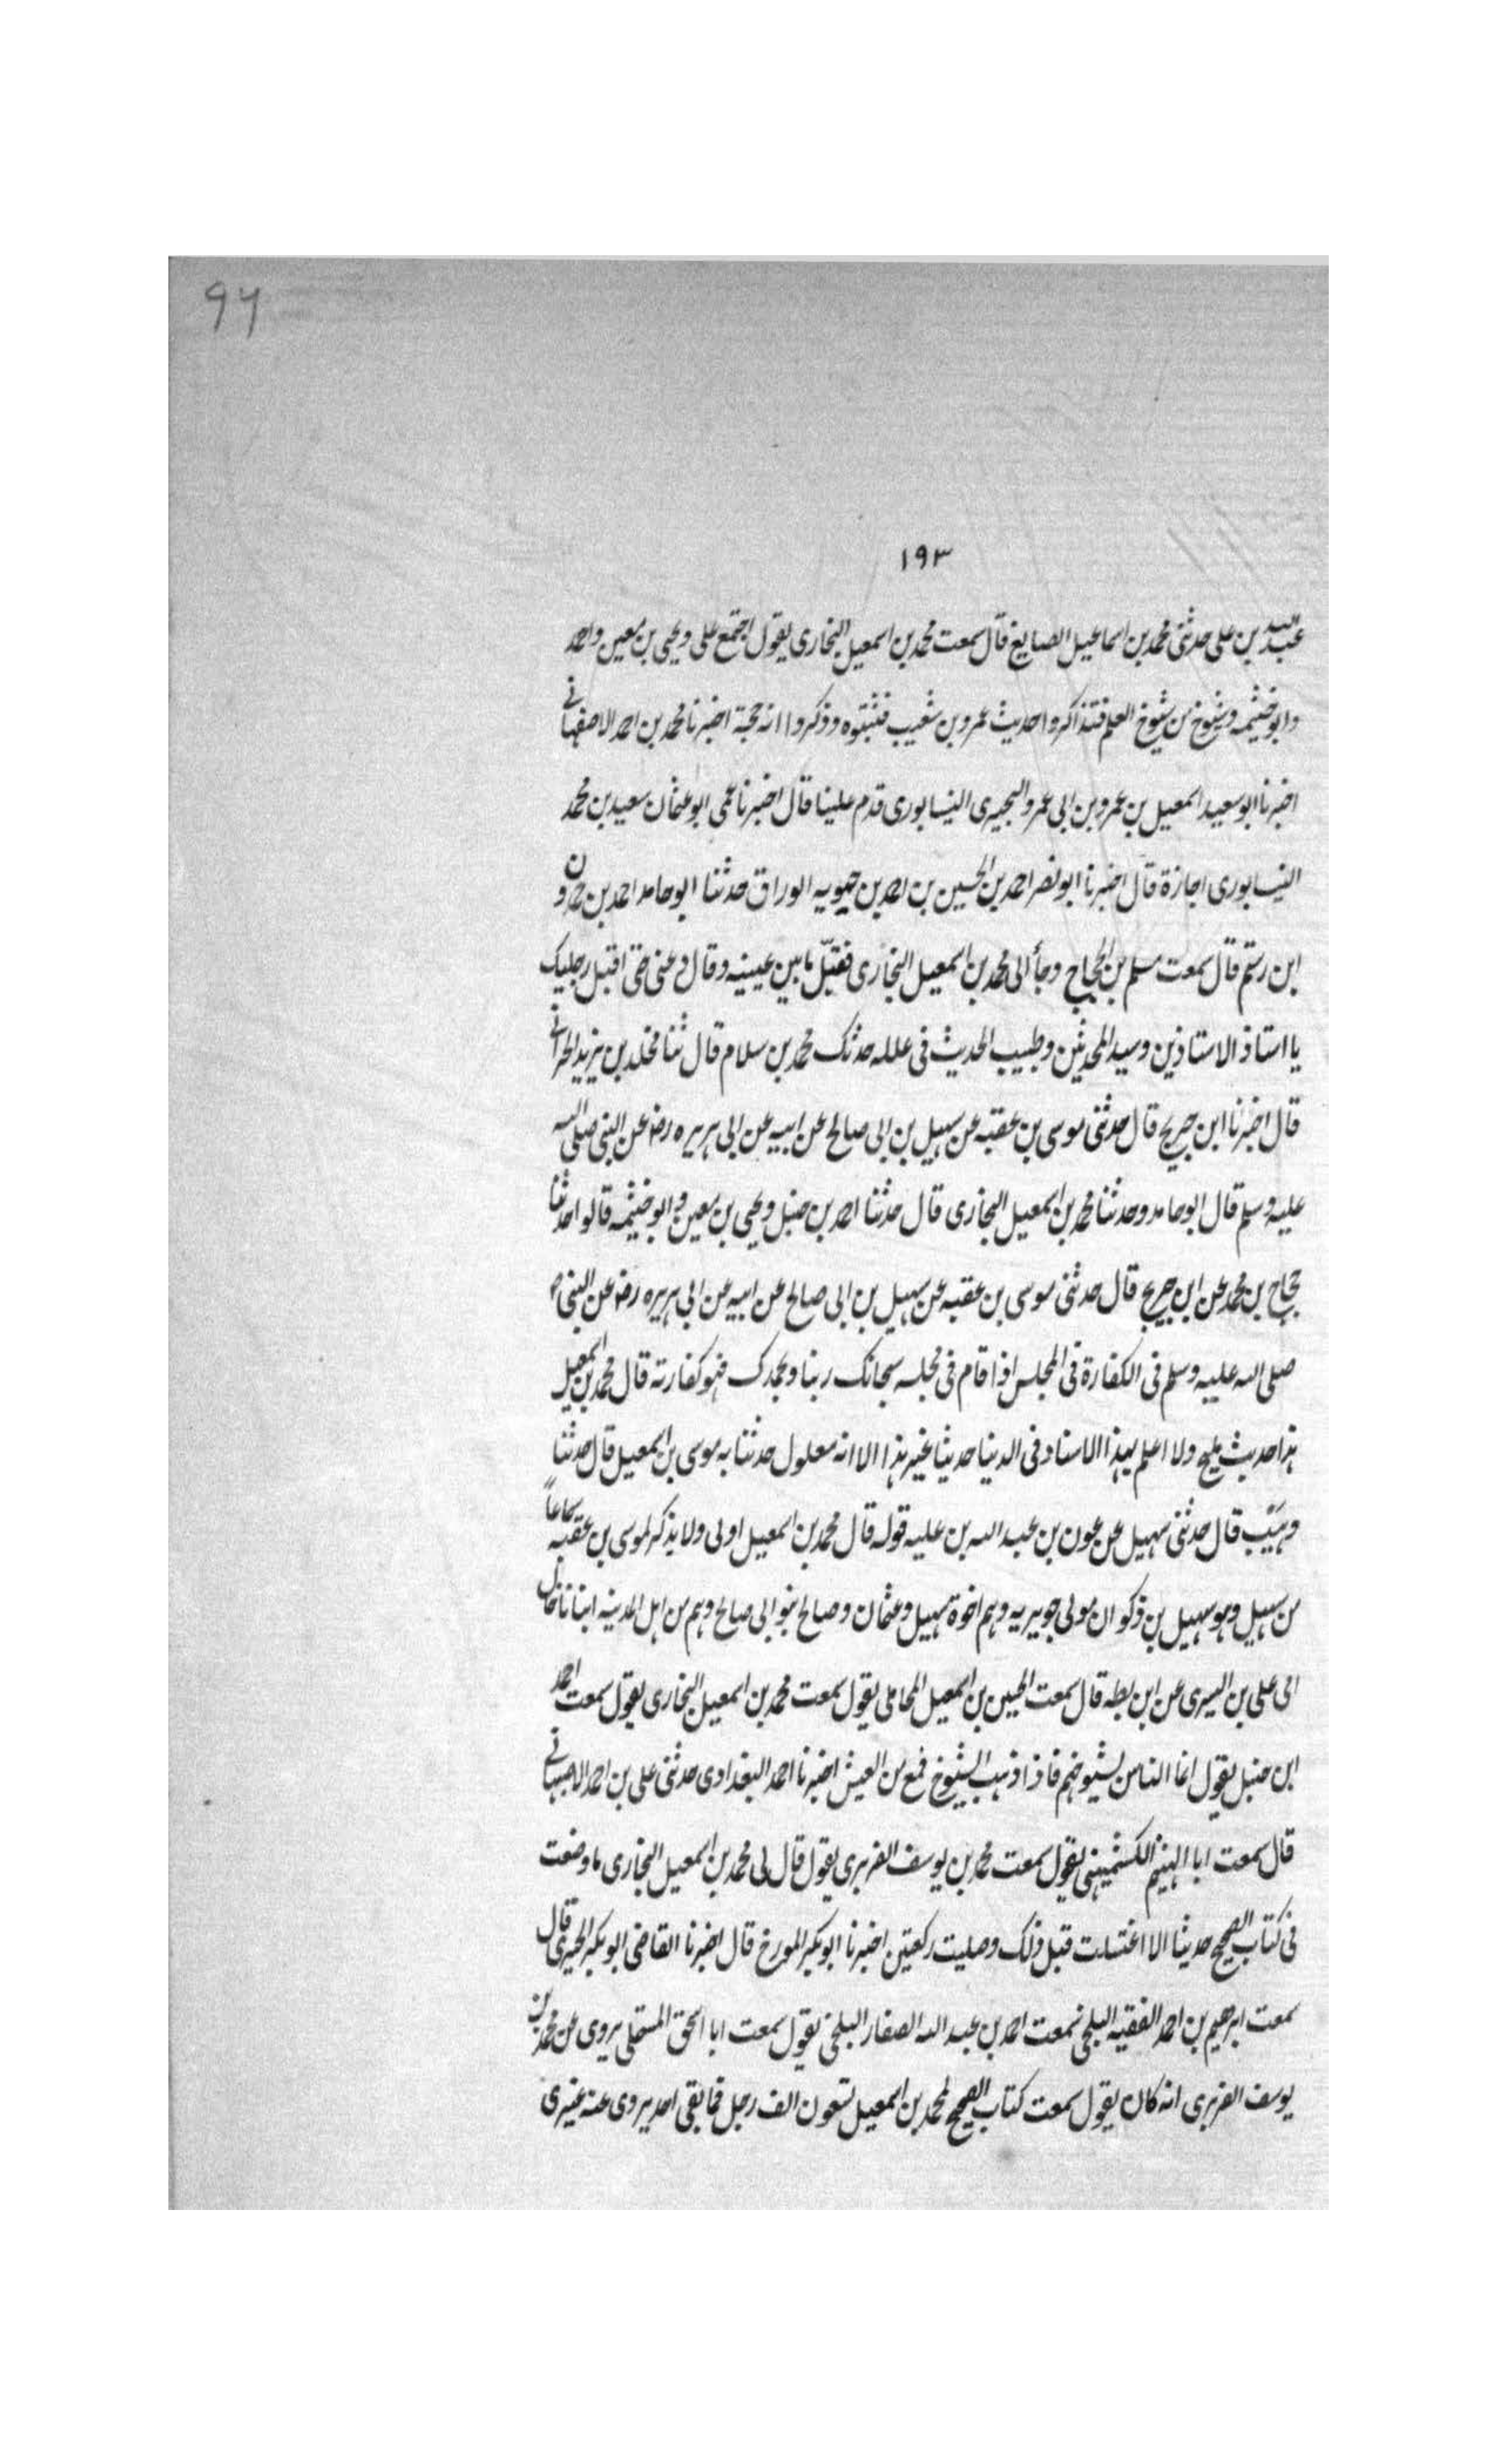 ٩٦
١٩٣
عبيد بن على حدثنى محمد بن اسماعيل الصايغ قال سمعت محمد بن اسمعيل البخارى يقول اجتمع على ويحيى بن معين واحمد
وابو خيثمه وشيوخ من شيوخ العلم فتذاكروا حديث عمرو بن شعيب فثبتوه وذكروا انه حجة اخبرنا محمد بن احمد الاصفهانے
اخبرنا ابو سعيد اسمعيل بن عمرو بن ابى عمرو البحيرى النيسابورى قدم علينا قال اخبرنا عمى ابو عثمان سعيد بن محمد
النيسابورى اجازة قال اخبرنا ابو نصر احمد بن الحسين بن احمد بن حيويه الوراق حدثنا ابو حامد احمد بن حمدون
ابن رستم قال سمعت مسلم بن الحجاج وجأ الى محمد بن اسمعيل البخارى فقبّل ما بين عينيه وقال دعنى حتى اقبل رجليك
يا استاذ الاستاذين وسيد المحدثين وطبيب الحديث فى علله حدثك محمد بن سلام قال ثنا مخلد بن يزيد الحرانے
قال اخبرنا ابن جريج قال حدثنى موسى بن عقبه عن سهيل بن ابى صالح عن ابيه عن ابى هريره رضـ عن النبى صلى الله
عليه وسلم قال ابو حامد وحدثنا محمد بن اسمعيل البخارى قال حدثنا احمد بن حنبل ويحيى بن معين وابو خيثمه قالوا حدثنا
حجاج بن محمد عن ابن جريج قال حدثنى موسى بن عقبه عن سهيل بن ابى صالح عن ابيه عن ابى هريره رضـ عن النبى
صلى الله عليه وسلم فى الكفارة فى المجلس اذا قام فى مجلسه سبحانك ربنا وبحمدك فهو كفارته قال محمد بن اسمعيل
هذا حديث مليح ولا اعلم بهذا الاسناد فى الدنيا حديثا غير هذا الا انه معلول حدثنا به موسى بن اسمعيل قال حدثنا
وهيب قال حدثنى سهيل عن عون بن عبد الله بن عليه قوله قال محمد بن اسمعيل اولى ولا يذكر لموسى بن عقبه سماعاً
من سهيل وهو سهيل بن ذكوان مولى جويريه وهم اخوة سهيل وعثمان وصالح بنو ابى صالح وهم من اهل المدينه انبانا خال
ابى على بن اليسرى عن ابن بطه قال سمعت الحسين بن اسمعيل المحاملى يقول سمعت محمد بن اسمعيل البخارى يقول سمعت احمد
ابن حنبل يقول انما الناس بشيوخهم فاذا ذهب الشيوخ فمع من العيش اخبرنا احمد البغدادى حدثنى على بن احمد الاصبهانے
قال سمعت ابا الهيثم الكشميهنى يقول سمعت محمد بن يوسف الفربرى يقول قال لى محمد بن اسمعيل البخارى ما وضعت
فى كتاب الصحيح حديثا الا اغتسلت قبل ذلك وصليت ركعتين اخبرنا ابو بكر المورخ قال اخبرنا القاضى ابو بكر الحيرى قال
سمعت ابرهيم بن احمد الفقيه البلخى سمعت احمد بن عبد الله الصفار البلخى يقول سمعت ابا اسحق المستملى يروى عن محمد بن
يوسف الفربرى انه كان يقول سمعت كتاب الصحيح لمحمد بن اسمعيل تسعون الف رجل فما بقى احد يروى عنه غيرى